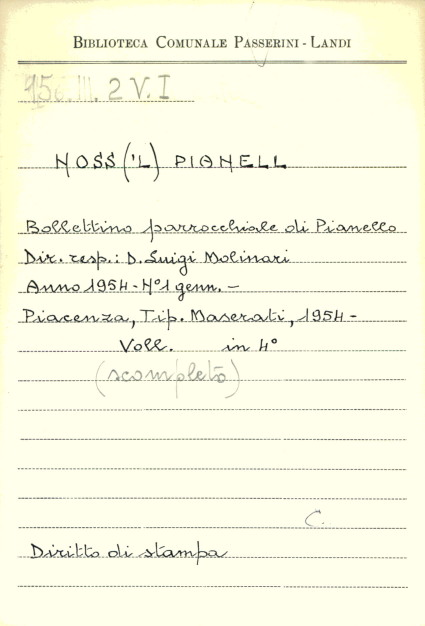 BIBLIOTECA COMUNALE PASSERINI - LANDI
III. 2 V. I
NOSS ('L) PIANELL
Bollettino parrocchiale di Pianello
Dir. resp.: D. Luigi Molinari
Anno 1954 - N° 1 genn. -
Piacenza, Tip. Maserati, 1954 -
Voll. in 4°
(scompleto)
C.
Diritto di stampa